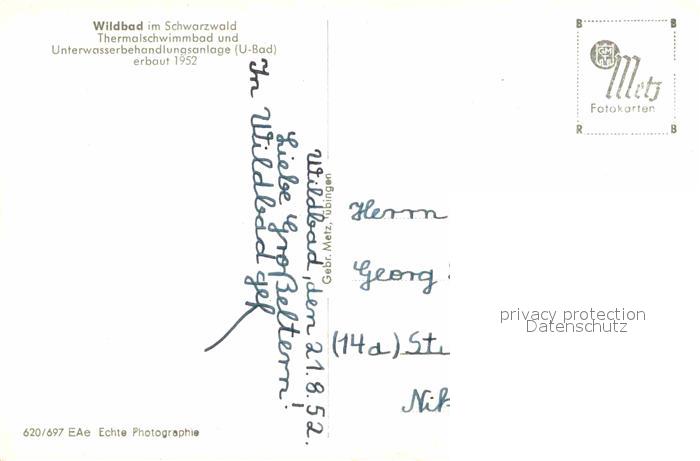 Wildbad im Schwarzwald
Thermalschwimmbad und
Unterwasserbehandlungsanlage (U-Bad)
erbaut 1952
Wildbad, den 21.8.52.
Liebe Großeltern!
In Wildbad gef
Gebr. Metz, Tübingen
B B
Metz
Fotokarten
R B
Herrn
Georg
(14a) St
Nik
privacy protection
Datenschutz
620/697 EAe Echte Photographie